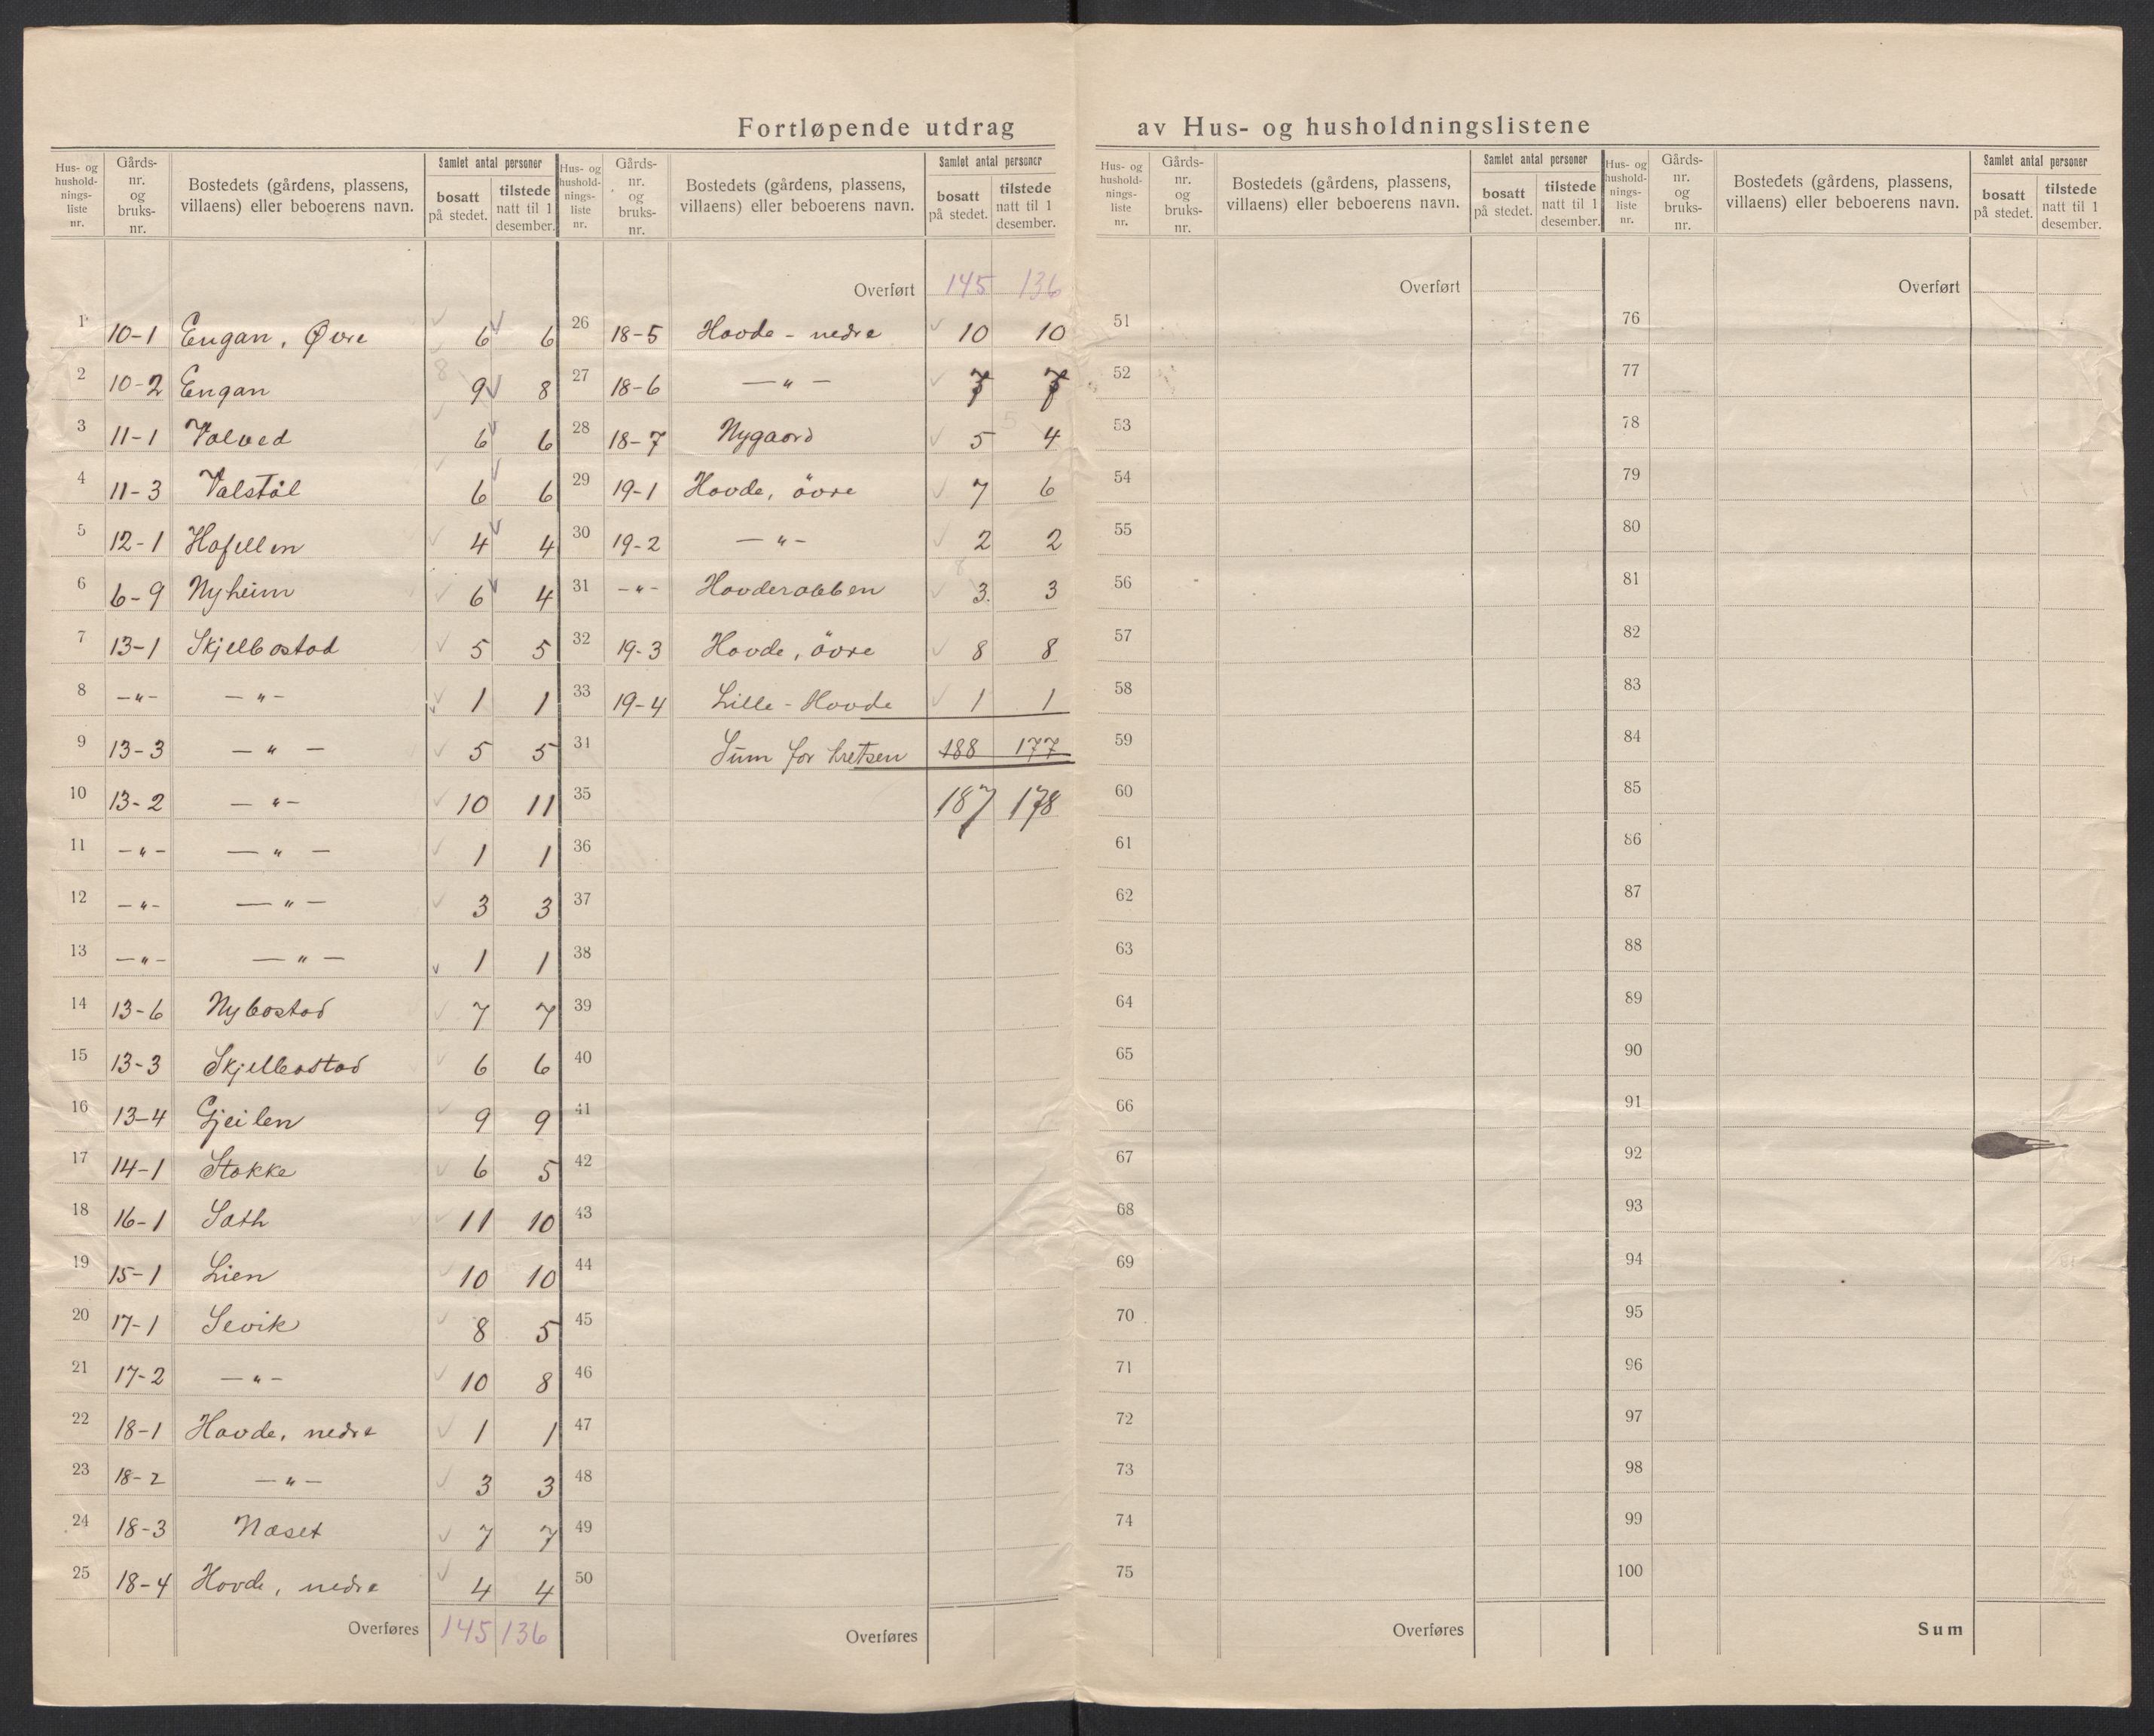 Fortløpende utdrag av Hus- og husholdningslistene
Hus- og hushold-nings-liste nr. Gårds-nr. og bruks-nr. Bostedets (gårdens, plassens, villaens) eller beboerens navn. Samlet antal personer bosatt på stedet. tilstede natt til 1 desember.
1 10-1 Engan, Øvre 6 6
2 10-2 Engan 8 9 8
3 11-1 Valved 6 6
4 11-3 Valstål 6 6
5 12-1 Hafellen 4 4
6 6-9 Nyheim 6 4
7 13-1 Skjelbostad 5 5
8 -"- -"- 1 1
9 13-3 -"- 5 5
10 13-2 -"- 10 11
11 -"- -"- 1 1
12 -"- -"- 3 3
13 -"- -"- 1 1
14 13-6 Nybostad 7 7
15 13-3 Skjelbostad 6 6
16 13-4 Gjeilen 9 9
17 14-1 Stokke 6 5
18 16-1 Sath 11 10
19 15-1 Lien 10 10
20 17-1 Sevik 8 5
21 17-2 -"- 10 8
22 18-1 Hovde, nedre 1 1
23 18-2 -"- 3 3
24 18-3 Næset 7 7
25 18-4 Hovde, nedre 4 4
Overføres 145 136
Hus- og hushold-nings-liste nr. Gårds-nr. og bruks-nr. Bostedets (gårdens, plassens, villaens) eller beboerens navn. Samlet antal personer bosatt på stedet. tilstede natt til 1 desember.
Overført 145 136
26 18-5 Hovde - nedre 10 10
27 18-6 -"- 7 7
28 18-7 Nygaard 5 4
29 19-1 Hovde, övre 7 6
30 19-2 -"- 2 2
31 -"- Hovderabben 3 3
32 19-3 Hovde, övre 8 8
33 19-4 Lille - Hovde 1 1
31 Sum for kretsen 188 177
35 187 178
36
37
38
39
40
41
42
43
44
45
46
47
48
49
50
Overføres
Hus- og hushold-nings-liste nr. Gårds-nr. og bruks-nr. Bostedets (gårdens, plassens, villaens) eller beboerens navn. Samlet antal personer bosatt på stedet. tilstede natt til 1 desember.
Overført
51
52
53
54
55
56
57
58
59
60
61
62
63
64
65
66
67
68
69
70
71
72
73
74
75
Overføres
Hus- og hushold-nings-liste nr. Gårds-nr. og bruks-nr. Bostedets (gårdens, plassens, villaens) eller beboerens navn. Samlet antal personer bosatt på stedet. tilstede natt til 1 desember.
Overført
76
77
78
79
80
81
82
83
84
85
86
87
88
89
90
91
92
93
94
95
96
97
98
99
100
Sum